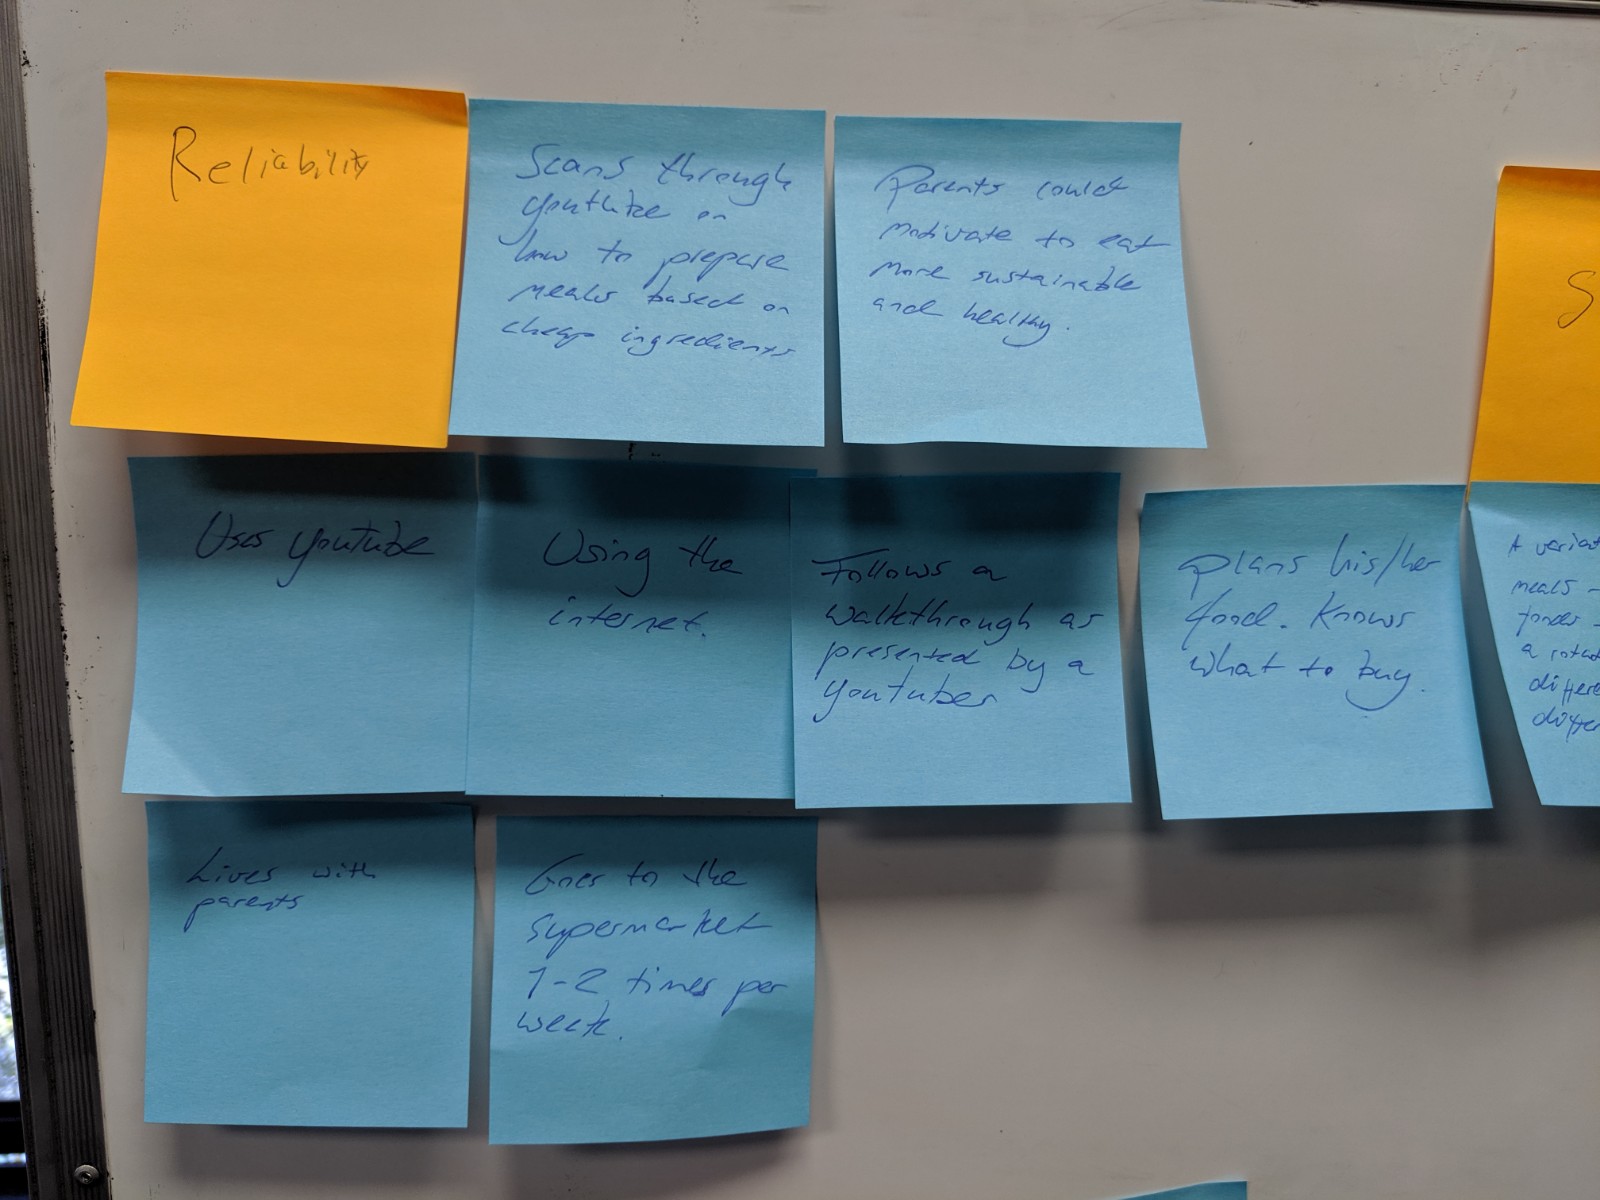 Reliability
Scans through
youtube on
how to prepare
meals based on
cheap ingredients
Parents could
motivate to eat
more sustainable
and healthy.
S
Uses youtube
Using the
internet.
Follows a
walkthrough as
presented by a
youtuber
Plans his/her
food. Knows
what to buy.
A variat
meals -
foods -
a rotat
differe
differ
Lives with
parents
Goes to the
supermarket
1-2 times per
week.